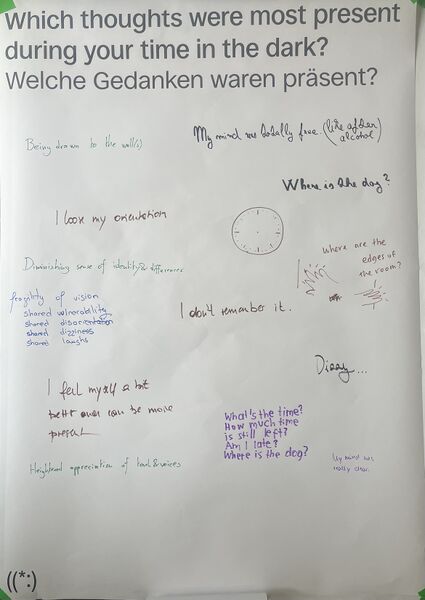 Which thoughts were most present
during your time in the dark?
Welche Gedanken waren präsent?
Being drawn to the wall(s)
My mind was totally free. (like after
alcohol)
Where is the dog?
I loose my orientation
where are the
edges of
the room?
Diminishing sense of identity & differences
fragility of vision
shared vulnerability
shared disorientation
shared dizziness
shared laughs
I don't remember it.
Dizzy...
I feel myself a lot
better can be more
present
What's the time?
How much time
is still left?
Am I late?
Where is the dog?
Heightened appreciation of touch & voices
My mind was
really clear.
((*:)